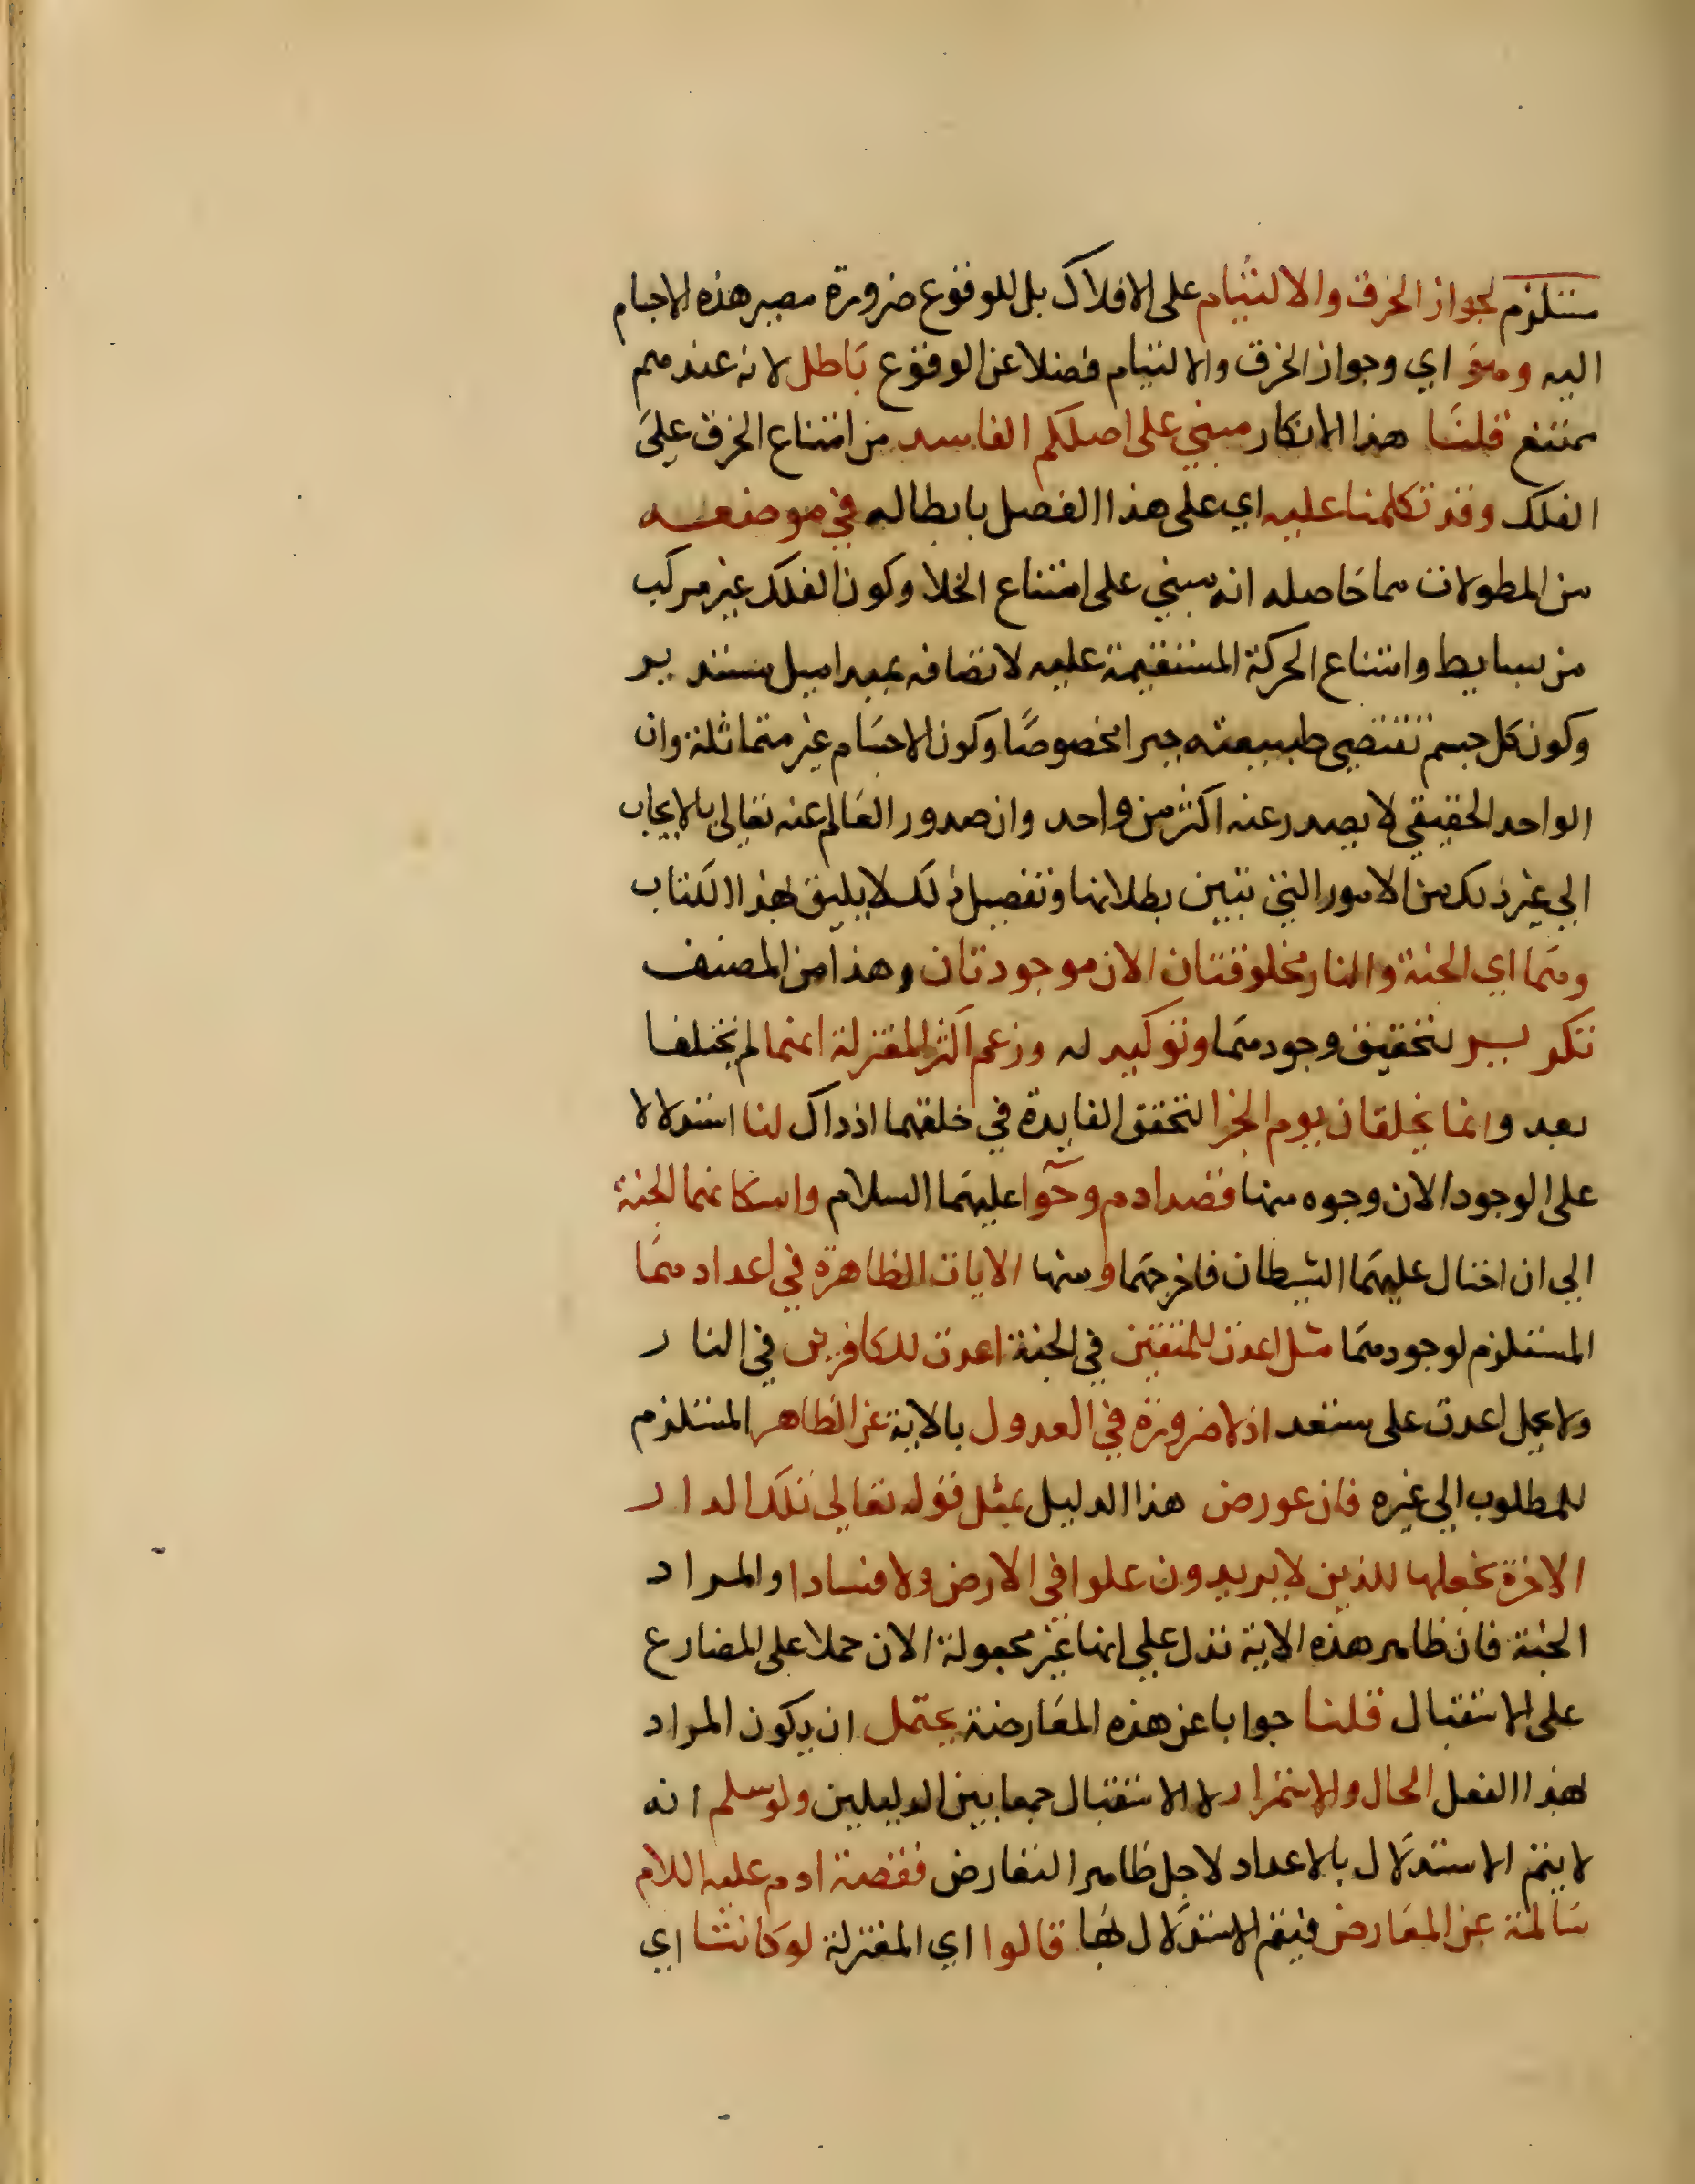 مستلزم لجواز الخرق والالتيام على الافلاك بل للوقوع ضرورة مصير هذه الاجسام
اليه وهو اي وجواز الخرق والالتيام فضلا عن الوقوع باطل لانه عندهم
ممتنع قلنا هذا الانكار مبني على اصلكم الفاسد من امتناع الخرق على
الفلك وقد تكلمنا عليه اي على هذا الفصل بابطاله في موضعه
من المطولات مما حاصله انه مبني على امتناع الخلا وكون الفلك غير مركب
من بسايط وامتناع الحركة المستقيمة عليه لاتصافه بمبدا ميل مستدير
وكون كل جسم تقتضي طبيعته حيزا مخصوصا وكون الاجسام غير متماثلة وان
الواحد الحقيقي لا يصدر عنه اكثر من واحد وان صدور العالم عنه تعالى بالايجاب
الى غير ذلك من الامور التي تبين بطلانها وتفصيل ذلك لا يليق بهذا الكتاب
وهما اي الجنة والنار مخلوقتان الان موجودتان وهذا من المصنف
تكرير لتحقيق وجودهما وتوكيد له وزعم اكثر المعتزلة انهما لم يخلقا
بعد وانما يخلقان يوم الجزا لتحقق الفايدة في خلقهما اذ ذاك لنا استدلالا
على الوجود الان وجوه منها قصة ادم وحوا عليهما السلام واسكانهما الجنة
الى ان احتال عليهما الشيطان فاخرجهما ومنها الايات الظاهرة في اعدادهما
المستلزم لوجودهما مثل اعدت للمتقين في الجنة اعدت للكافرين في النار
ولا يحمل اعدت على ستعد اذ لا ضرورة في العدول بالاية عن الظاهر المستلزم
للمطلوب الى غيره فان عورض هذا الدليل بمثل قوله تعالى تلك الدار
الاخرة نجعلها للذين لا يريدون علوا في الارض ولا فسادا والمراد
الجنة فان ظاهر هذه الاية تدل على انها غير مجعولة الان حملا على المضارع
على الاستقبال قلنا جوابا عن هذه المعارضة يحتمل ان يكون المراد
بهذا الفعل الحال والاستمرار لا الاستقبال جمعا بين الدليلين ولو سلم انه
لا يتم الاستدلال بالاعداد لاجل ظاهر التعارض فقصة ادم عليه اللام
سالمة عن المعارض فيتم الاستدلال بها قالوا اي المعتزلة لو كانتا اي